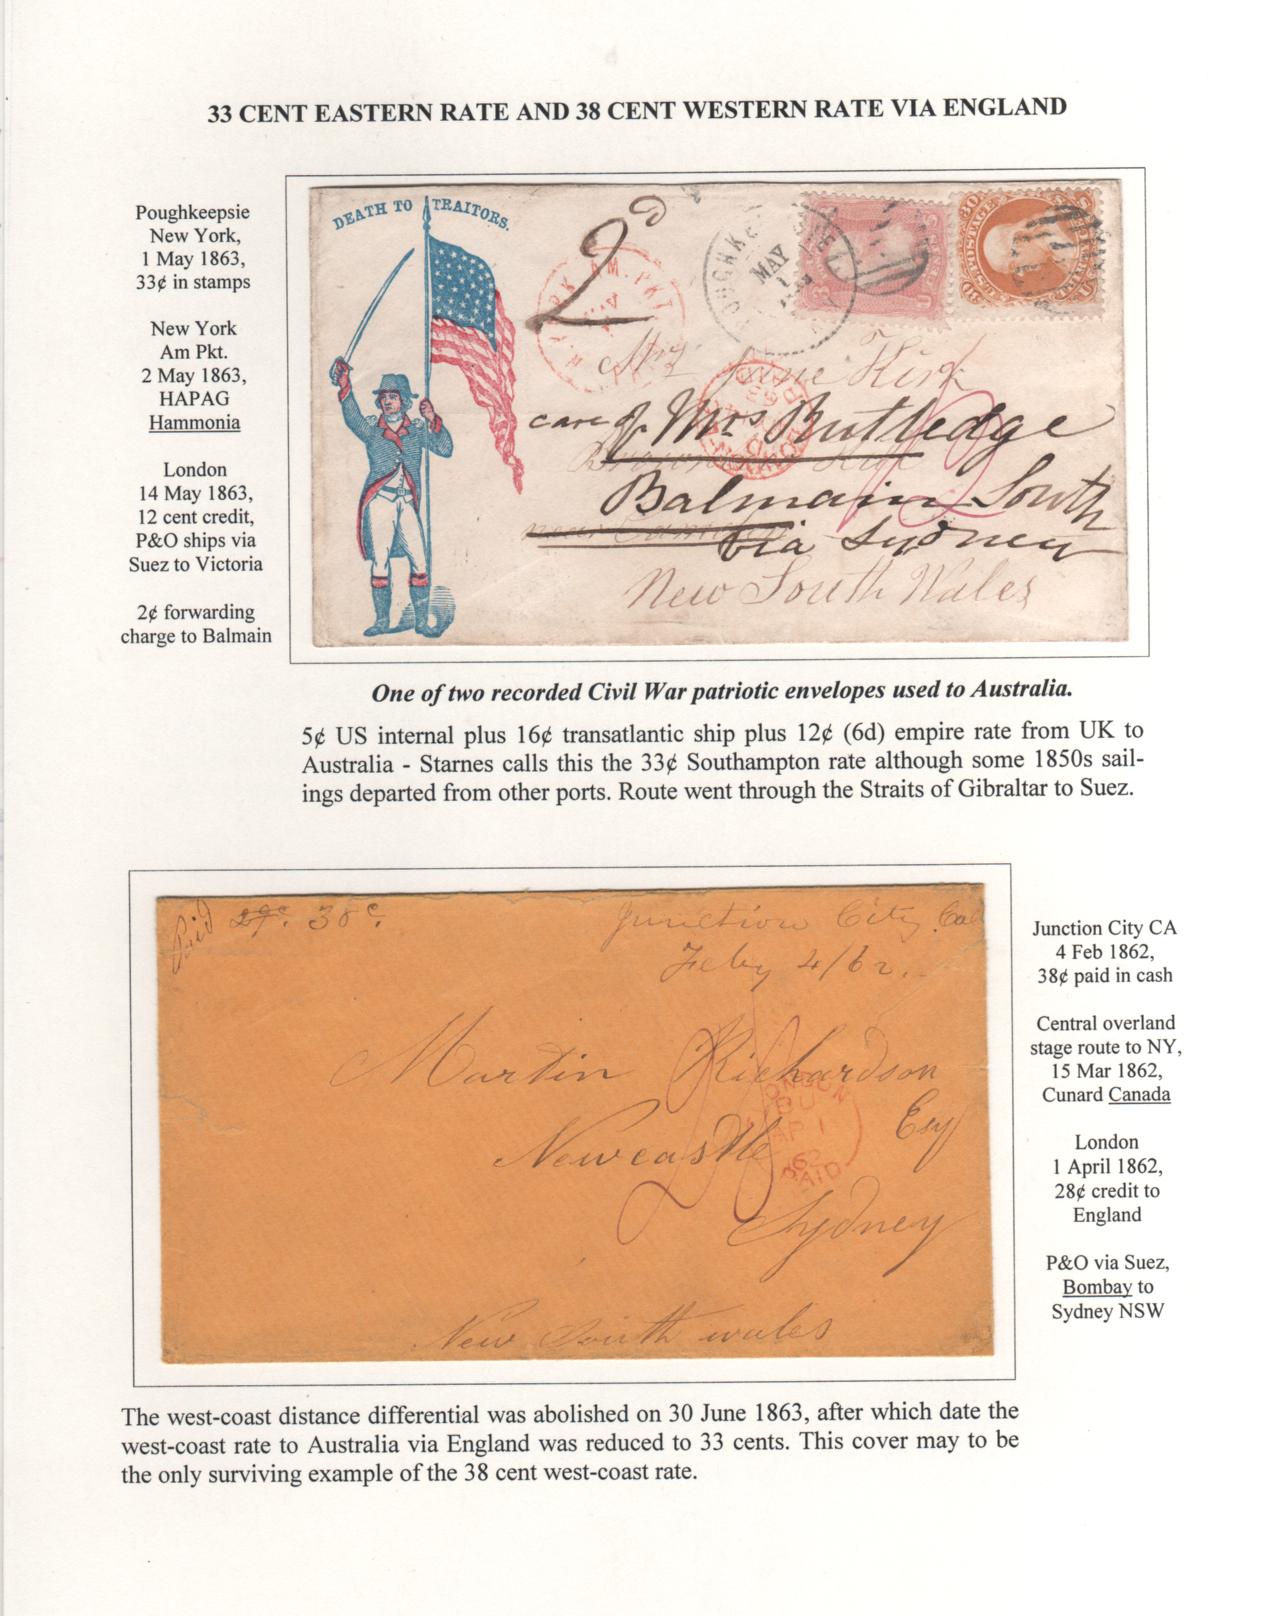 33 CENT EASTERN RATE AND 38 CENT WESTERN RATE VIA ENGLAND
Poughkeepsie
New York,
1 May 1863,
33¢ in stamps
New York
Am Pkt.
2 May 1863,
HAPAG
Hammonia
London
14 May 1863,
12 cent credit,
P&O ships via
Suez to Victoria
2¢ forwarding
charge to Balmain
DEATH TO TRAITORS.
2d
MAY
1
30
U.S. POSTAGE
PAID
care of Mrs Rutledge
Balmain South
via Sydney
New South Wales
One of two recorded Civil War patriotic envelopes used to Australia.
5¢ US internal plus 16¢ transatlantic ship plus 12¢ (6d) empire rate from UK to
Australia - Starnes calls this the 33¢ Southampton rate although some 1850s sail-
ings departed from other ports. Route went through the Straits of Gibraltar to Suez.
Paid 29c. 38c.
Junction City Cal
Feby 4/62.
Martin Richardson
Esq
Newcastle
Sydney
New South wales
LONDON
AP 1
62
PAID
28
Junction City CA
4 Feb 1862,
38¢ paid in cash
Central overland
stage route to NY,
15 Mar 1862,
Cunard Canada
London
1 April 1862,
28¢ credit to
England
P&O via Suez,
Bombay to
Sydney NSW
The west-coast distance differential was abolished on 30 June 1863, after which date the
west-coast rate to Australia via England was reduced to 33 cents. This cover may to be
the only surviving example of the 38 cent west-coast rate.